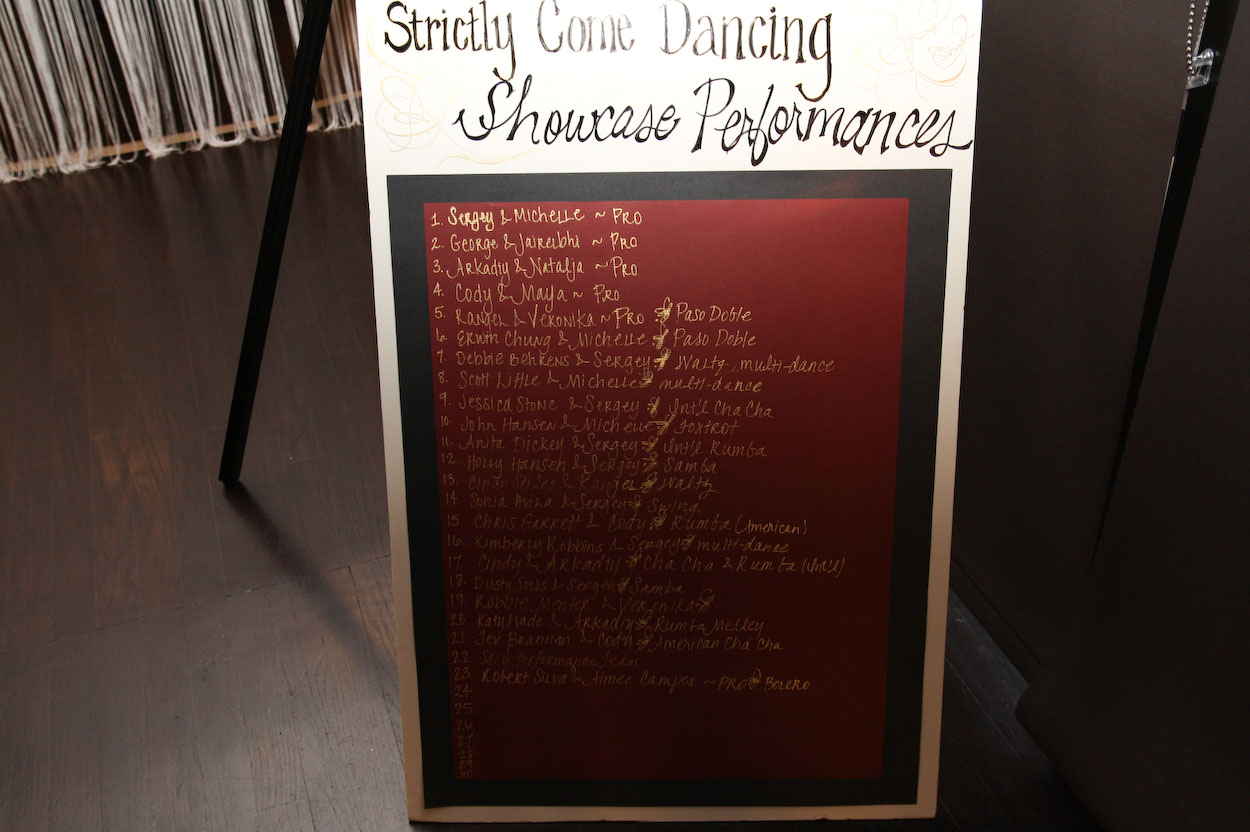 Strictly Come Dancing
Showcase Performances
1. Sergey & Michelle ~ Pro
2. George & Jaireibhi ~ Pro
3. Arkadiy & Natalja ~ Pro
4. Cody & Maya ~ Pro
5. Rangel & Veronika ~ Pro Paso Doble
6. Erwin Chung & Michelle Paso Doble
7. Debbie Behrens & Sergey Waltz, multi-dance
8. Scott Little & Michelle multi-dance
9. Jessica Stone & Sergey Int'l Cha Cha
10. John Hansen & Michelle Foxtrot
11. Anita Dickey & Sergey Int'l Rumba
12. Holly Hansen & Sergey Samba
13. Cindy & Rangel Waltz
14. Sonia Avila & Sergey Swing
15. Chris Garrett & Cody Rumba (American)
16. Kimberly Robbins & Sergey multi-dance
17. Cindy & Arkadiy Cha Cha & Rumba (Int'l)
18. Dusty & Sergey Samba
19. Robbie Menter & Veronika
20. & Arkadiy Rumba Medley
21. Jev Brannon & Cody American Cha Cha
22. Performance Team
23. Robert Silva & Aimee Campos ~ Pro Bolero
24.
25
26
27
28
29
30